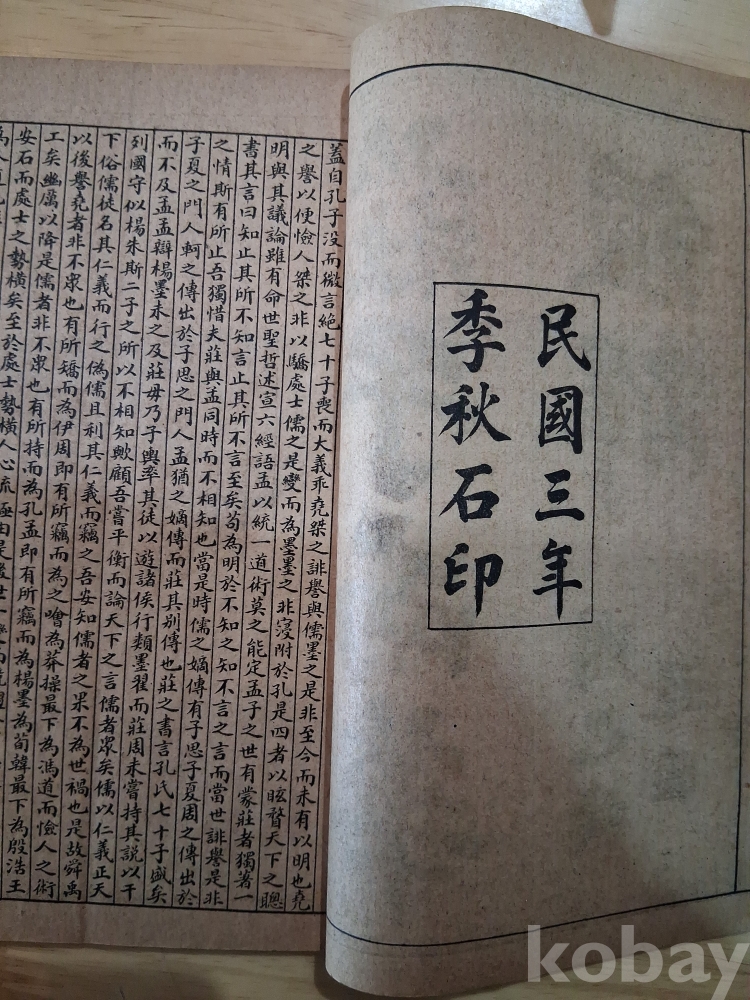 民國三年
季秋石印
蓋自孔子没而微言絕七十子喪而大義乖堯桀之誹譽與儒墨之是非至今而未有以明也堯
之譽以便儉人桀之非以驕處士儒之是變而為墨墨之非寖附於孔是四者以眩瞀天下之聰
明與其議論雖有命世聖哲述宣六經語孟以統一道術莫之能定孟子之世有蒙莊者獨著一
書其言曰知止其所不知言止其所不言至矣茍為明於不知之知不言之言而當世誹譽是非
之情斯有所止吾獨惜夫莊與孟同時而不相知也當是時儒之嫡傳有子思子夏周之傳出於
子夏之門人軻之傳出於子思之門人孟猶之嫡傳而莊其別傳也莊之書言孔氏七十子盛矣
而不及孟孟辯楊墨未之及莊毋乃子輿率其徒以遊諸侯行類墨翟而莊周未嘗持其說以干
列國守似楊朱斯二子之所以不相知歟顧吾嘗平衡而論天下之言儒者眾矣儒以仁義正天
下俗儒徒名其仁義而行之偽儒且利其仁義而竊之吾安知儒者之果不為世禍也是故舜禹
以後譽堯者非不眾也有所矯而為伊周即有所竊而為之噲為莽操最下為馮道而儉人之術
工矣幽厲以降是儒者非不眾也有所持而為孔孟即有所竊而為楊墨為荀韓最下為殷浩王
安石而處士之勢橫矣至於處士勢橫人心流
kobay